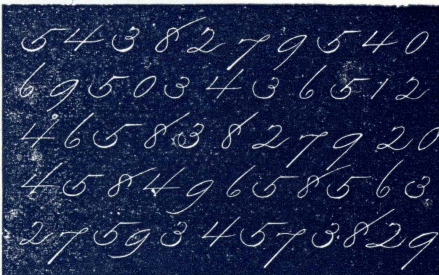 5 4 3 8 2 7 9 5 4 0
6 9 5 0 3 4 3 6 5 1 2
4 6 5 8 3 8 2 7 9 2 0
4 5 8 4 9 6 5 8 5 6 3
2 7 5 9 3 4 5 7 3 8 2 9